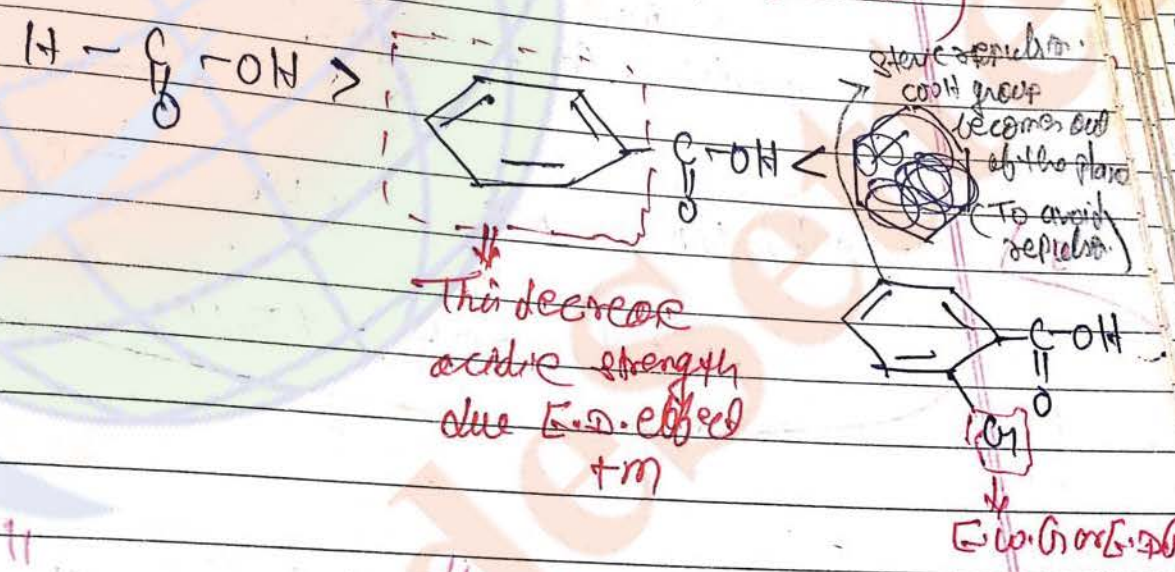 H - C - OH >
O
C - OH <
O
steric repulsion.
COOH group
becomes out
of the plane
(To avoid
repulsion.)
This decrease
acidic strength
due E.D. effect
+m
C - OH
O
G
E.W.G or E.D.G